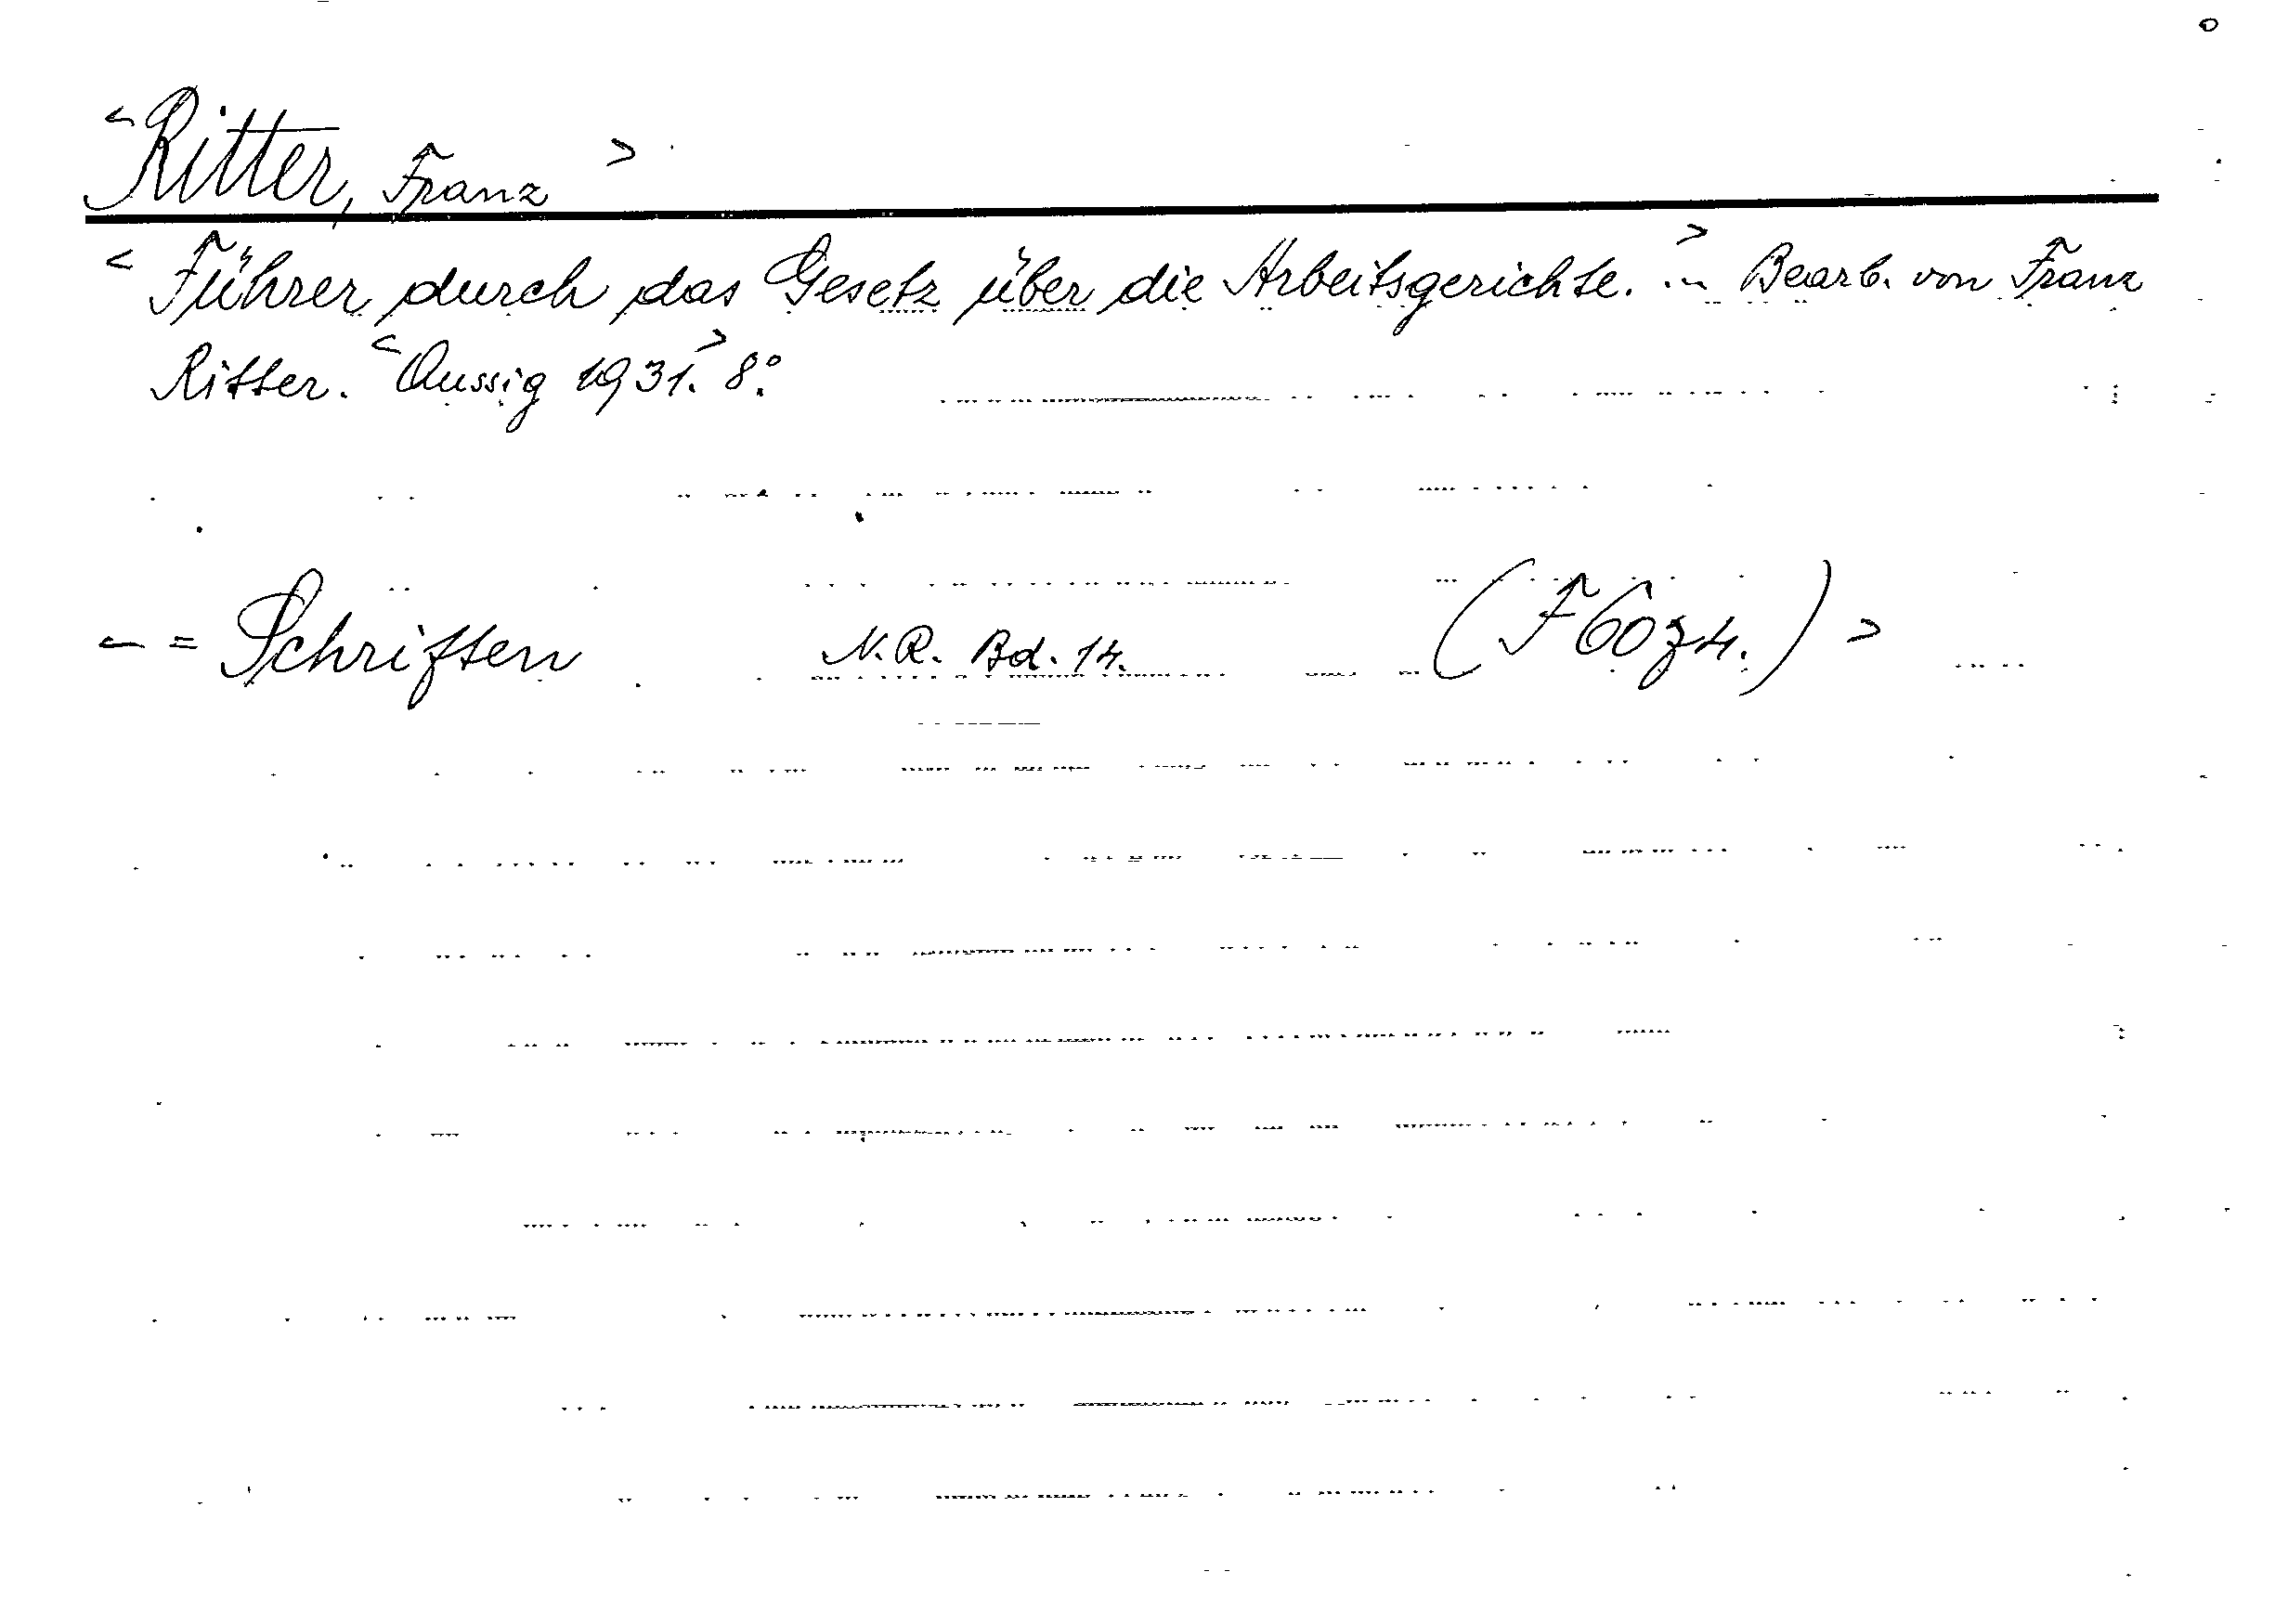 <Ritter, Franz>
<Führer durch das Gesetz über die Arbeitsgerichte. ...> Bearb. von Franz
Ritter. <Aussig 1931.> 8°.
<- = Schriften N.R. Bd. 14. (F60z4.)>